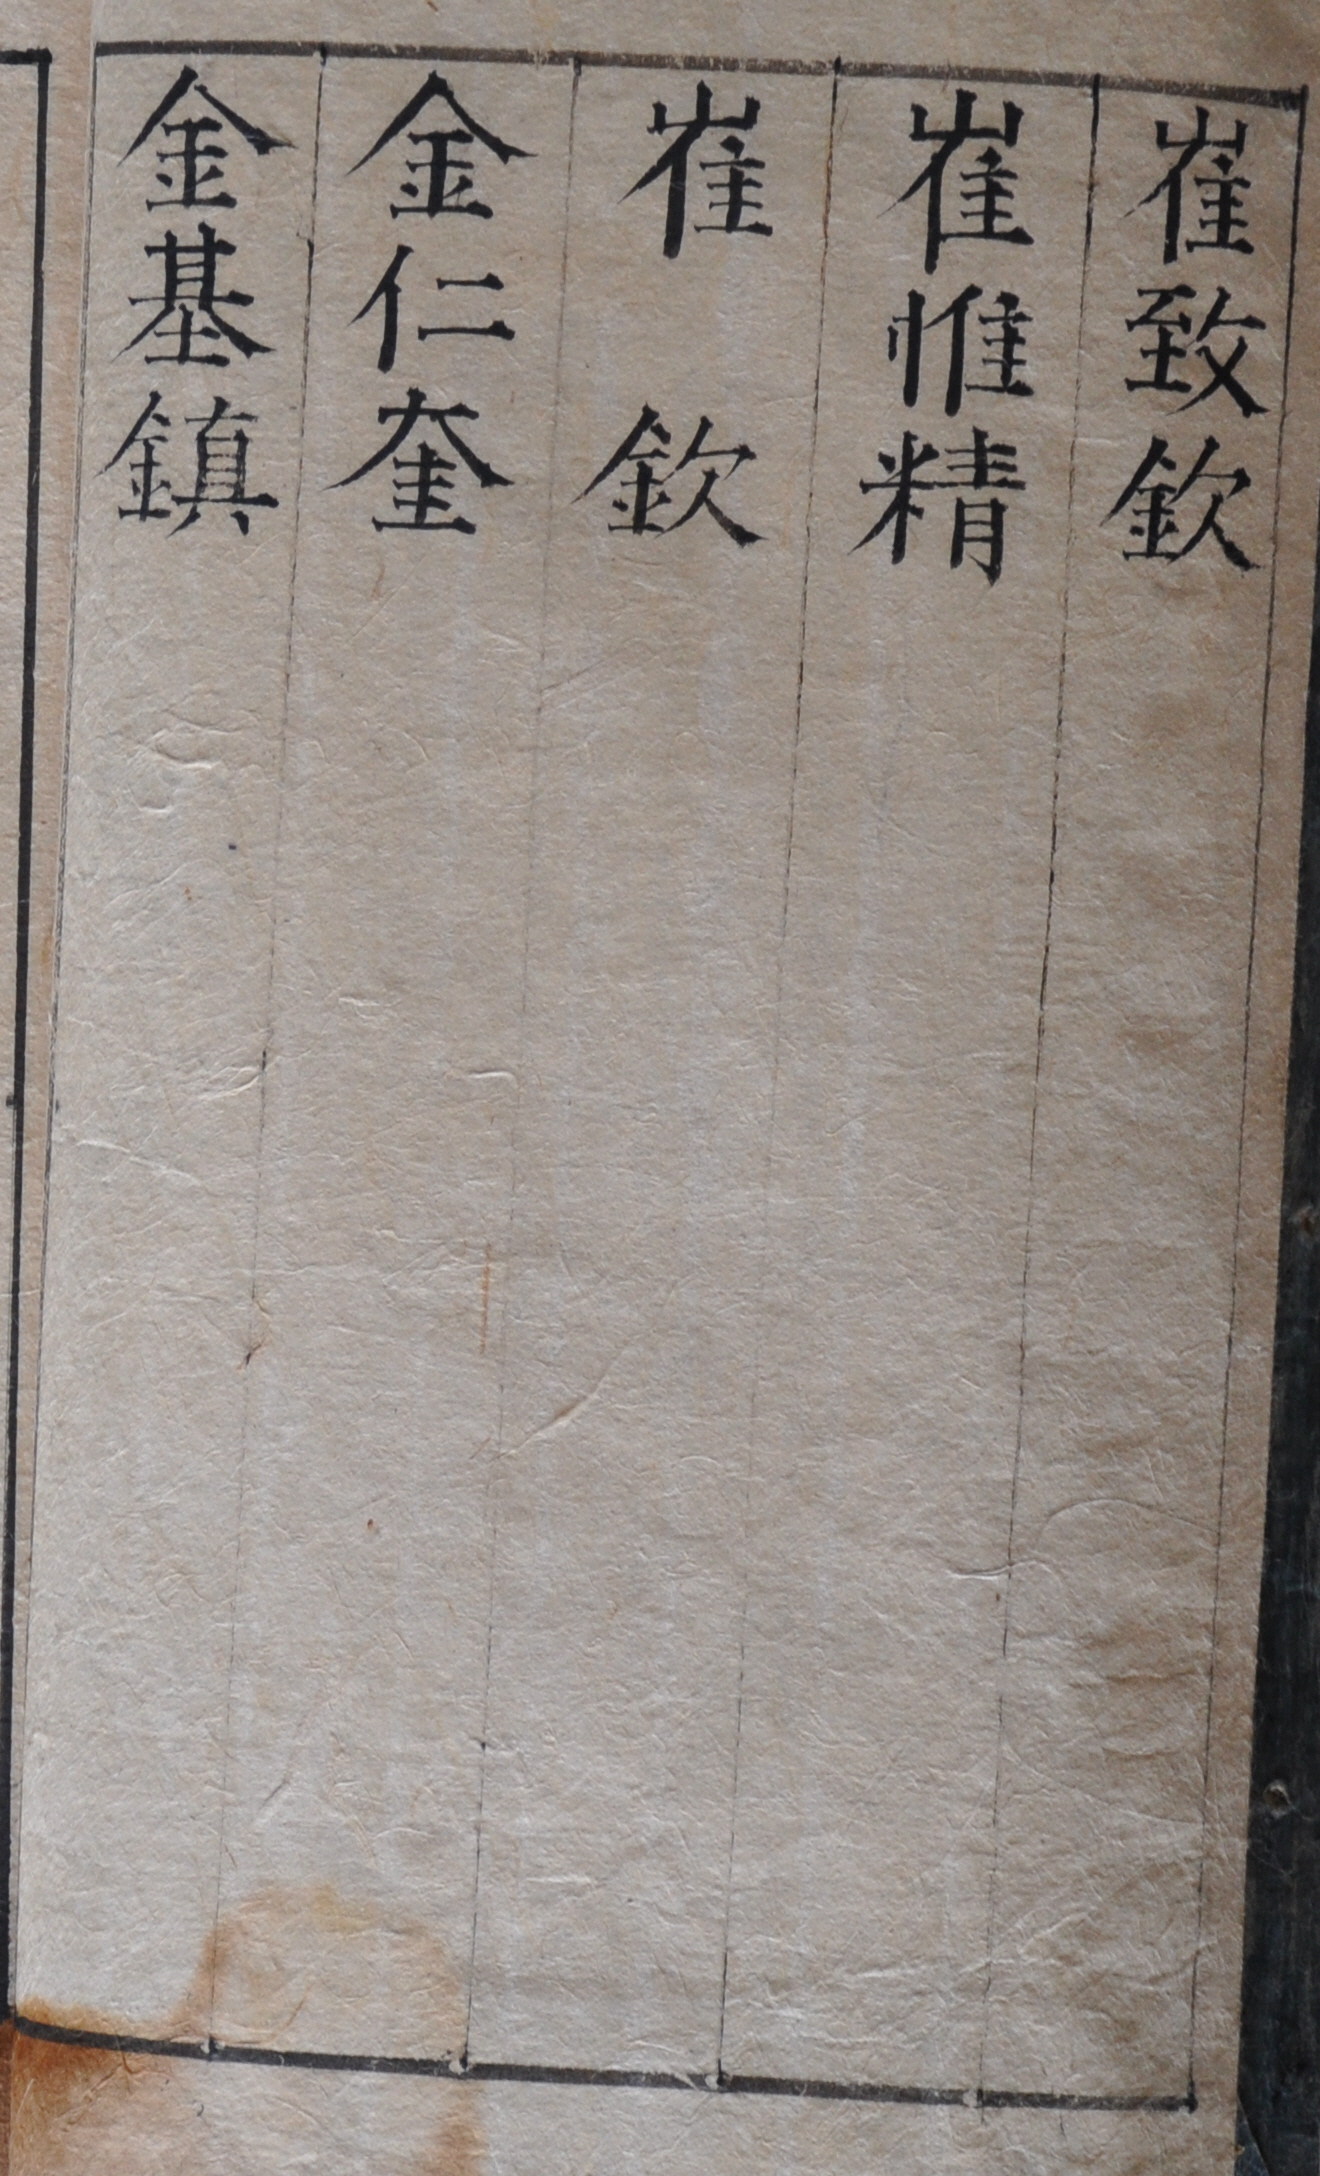 崔致欽
崔惟精
崔欽
金仁奎
金基鎮